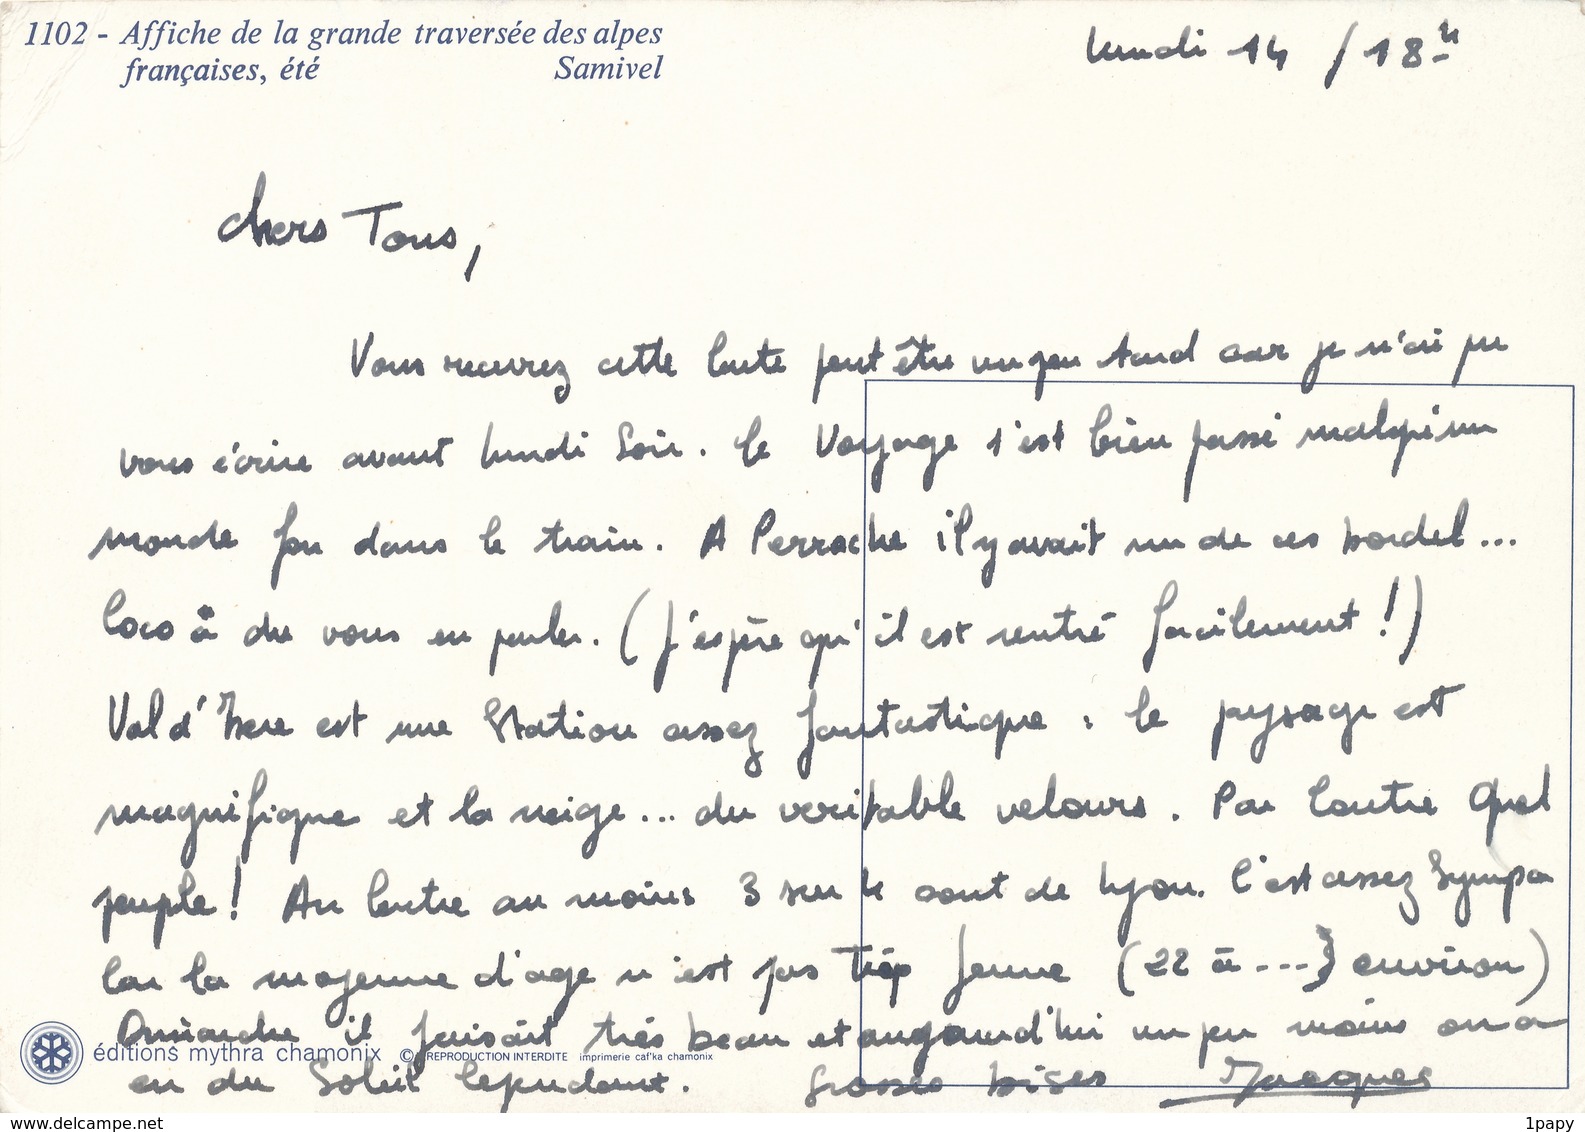 1102 - Affiche de la grande traversée des alpes
françaises, été Samivel
lundi 14 / 18h
Chers Tous,
Vous recevrez cette carte peut être un peu tard car je n'ai pu
vous écrire avant lundi soir. Le Voyage s'est bien passé malgré un
monde fou dans le train. A Perrache il y avait un de ces bordel...
Coco à du vous en parler. (J'espère qu'il est rentré facilement !)
Val d'Isere est une Station assez fantastique : le paysage est
magnifique et la neige... du veritable velours. Par Contre Quel
peuple ! Au Centre au moins 3 sur 4 sont de Lyon. C'est assez Sympa
Car la moyenne d'age n'est pas trop Jeune (22 à ---} environ)
Dimanche il faisait très beau et aujourd'hui un peu moins on a
eu du Soleil Cependant. Grosses bises Jacques
éditions mythra chamonix © REPRODUCTION INTERDITE imprimerie caf'ka chamonix
delcampe.net 1papy